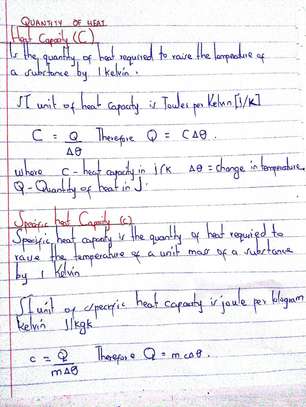 QUANTITY OF HEAT
Heat Capacity (C)
Is the quantity of heat required to raise the temperature of
a substance by 1 kelvin.
SI unit of heat capacity is Joules per Kelvin [J/K]
C = Q/Δθ Therefore Q = CΔθ.
where C - heat capacity in J/K Δθ = change in temperature.
Q - Quantity of heat in J.
Specific heat Capacity (c)
Specific heat capacity is the quantity of heat required to
raise the temperature of a unit mass of a substance
by 1 Kelvin
SI unit of specific heat capacity is joule per kilogram
kelvin J/kgK
c = Q/mΔθ Therefore Q = mcΔθ.